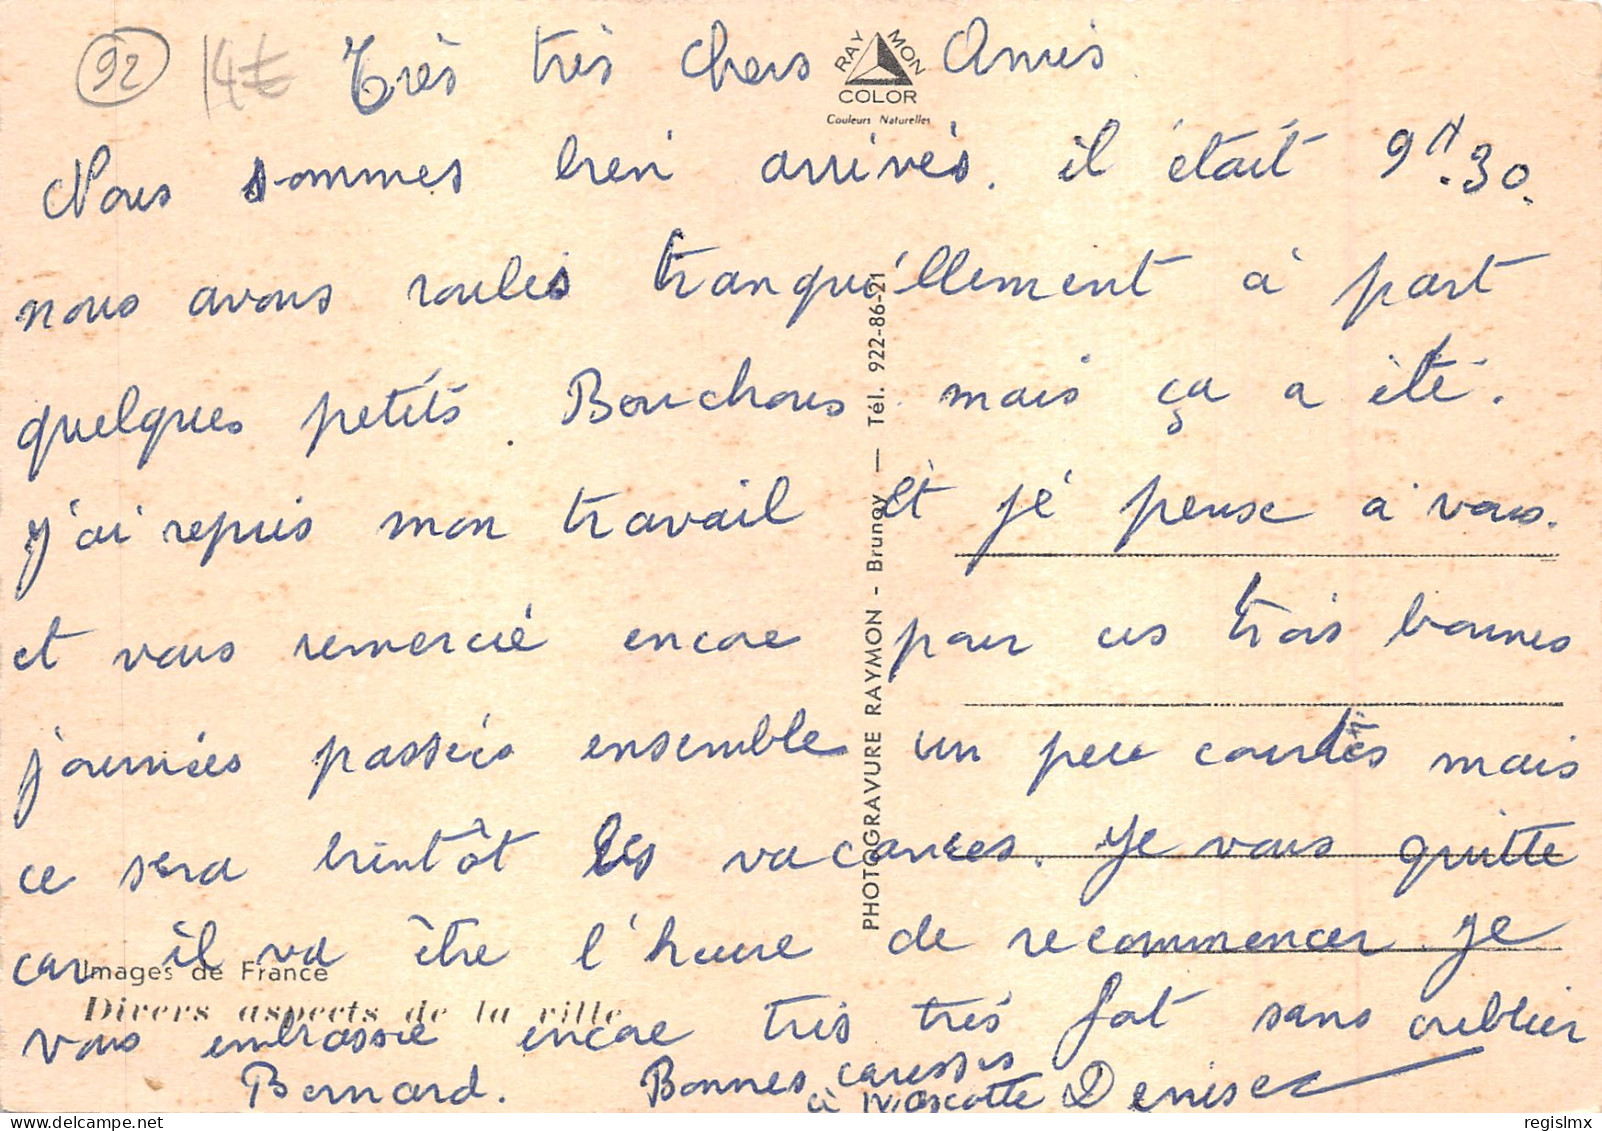 92 14€ Très très chers Amis
RAYMON
COLOR
Couleurs Naturelles
Nous sommes bien arrivés. il était 9H.30.
nous avons roulés tranquillement à part
quelques petits Bouchons mais ça a été.
j'ai repris mon travail Et jé pense a vous.
et vous remercié encore pour ces trois bonnes
journées passées ensemble un peu courtes mais
ce sera bientôt les vacances. Je vous quitte
car il va être l'heure de recommencer Je
vous embrasse encore très très fort sans oublier
Bernard. Bonnes caresses
à Mascotte Denise
PHOTOGRAVURE RAYMON - Brunoy — Tél. 922-86-21
Images de France
Divers aspects de la ville
regislmx